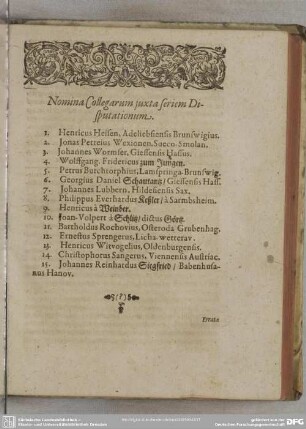 Nomina Collegarum juxta seriem Di-
sputationum.
1. Henricus Helsen, Adeliebsensis Brunswigius.
2. Jonas Petreius Wexionen, Sueco-Smolan.
3. Johannes Wormser, Giessensis Hassus.
4. Wolffgang. Fridericus zum Jungen.
5. Petrus Burchtorphius, Lamspringa-Brunswig.
6. Georgius Daniel Schautantz / Giessensis Hass.
7. Johannes Lubbern, Hildesiensis Sax.
8. Philippus Everhardus Keßler / à Sarmbsheim.
9. Henricus à Weinher.
10. Joan-Volpert à Schlitz / dictus Görtz.
11. Bartholdus Rochovius, Osteroda Grubenhag.
12. Ernestus Sprengerus, Licha-wetterav.
13. Henricus Wievogelius, Oldenburgensis.
14. Christophorus Sangerus, Viennensis Austriac.
15. Johannes Reinhardus Siegfried / Babenhusa-
nus Hanov.
Errata
DFG